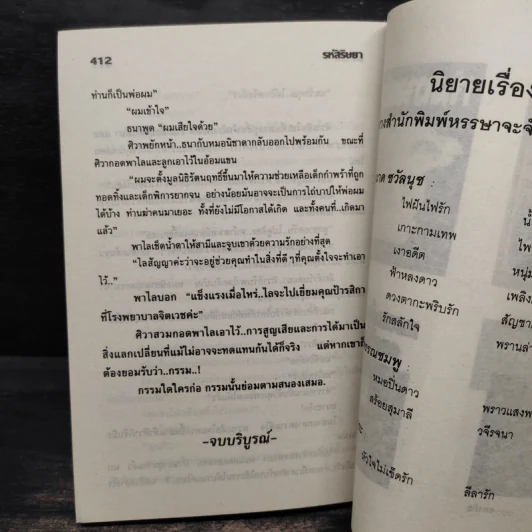 412
รหัสริษยา
ท่านก็เป็นพ่อผม”
“ผมเข้าใจ”
ธนาพูด “ผมเสียใจด้วย”
ศิวาพยักหน้า..ธนากับหมอนิชาดากลับออกไปพร้อมกัน ขณะที่
ศิวากอดพาไลและลูกเอาไว้ในอ้อมแขน
“ผมจะตั้งมูลนิธิรัตนฤทธิ์ขึ้นมาให้ความช่วยเหลือเด็กกำพร้าที่ถูก
ทอดทิ้งและเด็กพิการยากจน อย่างน้อยมันอาจจะเป็นการไถ่บาปให้พ่อผม
ได้บ้าง ท่านฆ่าคนมาเยอะ ทั้งที่ยังไม่มีโอกาสได้เกิด และทั้งคนที่..เกิดมา
แล้ว”
พาไลเช็ดน้ำตาให้สามีและจูบเขาด้วยความรักอย่างที่สุด
“ไลสัญญาค่ะว่าจะอยู่ช่วยคุณทำในสิ่งที่ดีๆที่คุณตั้งใจจะทำเอา
ไว้..”
พาไลบอก “แข็งแรงเมื่อไหร่..ไลจะไปเยี่ยมคุณป้ารสิกา
ที่โรงพยาบาลจิตเวชค่ะ”
ศิวาสวมกอดพาไลเอาไว้..การสูญเสียและการได้มาเป็น
สิ่งแลกเปลี่ยนที่แม้ไม่อาจจะทดแทนกันได้ก็จริง แต่หากเขาก็
ต้องยอมรับว่า..กรรม..!
กรรมใดใครก่อ กรรมนั้นย่อมตามสนองเสมอ.
-จบบริบูรณ์-
นิยายเรื่อง
ทางสำนักพิมพ์หรรษาจะจั
ชวัลนุช :
ไฟฝันไฟรัก
เกาะกามเทพ
เงาอดีต
ฟ้าหลงดาว
ดวงตากะพริบรัก
รักสลักใจ
รณชมพู :
หมอปิ่นดาว
สร้อยสุมาลี
หัวใจไม่เซ็ดรัก
ไพ
หนุ่ม
เพลิง
สัญชา
พรานล่า
พราวแสงพ
วจีรจนา
ลีลารัก